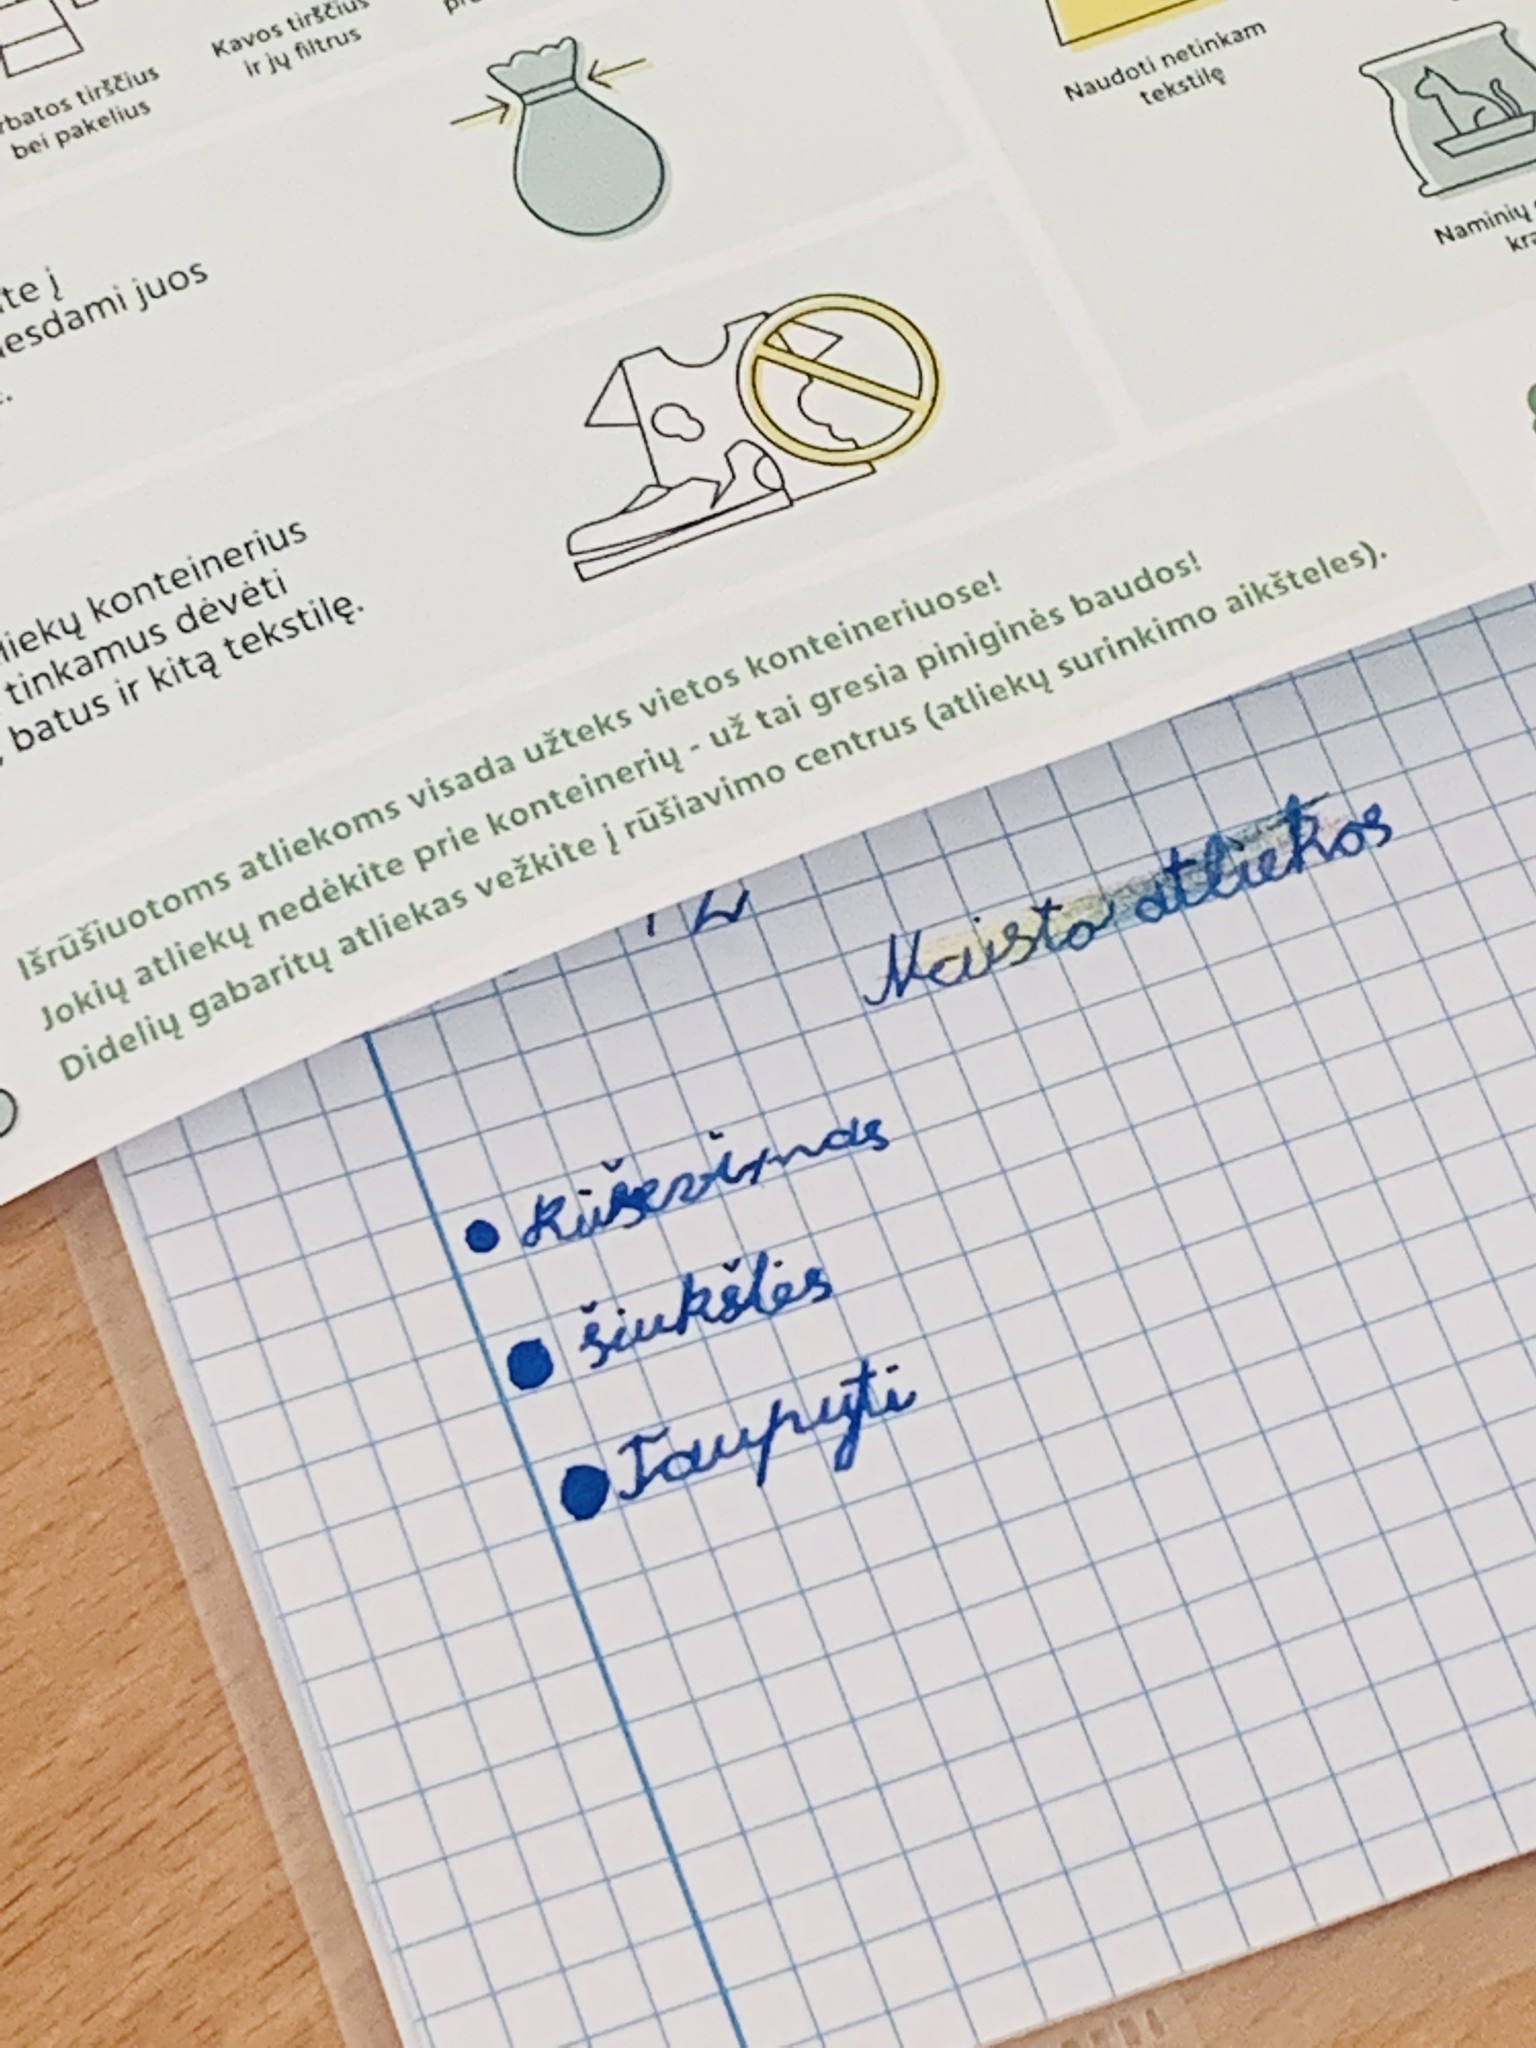 Kavos tirščius
ir jų filtrus
rbatos tirščius
bei pakelius
Naudoti netinkam
tekstilę
Naminių
kra
te į
esdami juos
liekų konteinerius
tinkamus dėvėti
, batus ir kitą tekstilę.
Išrūšiuotoms atliekoms visada užteks vietos konteineriuose!
Jokių atliekų nedėkite prie konteinerių - už tai gresia piniginės baudos!
Didelių gabaritų atliekas vežkite į rūšiavimo centrus (atliekų surinkimo aikšteles).
Maisto atliekos
• šiukšlės
• Taupyti